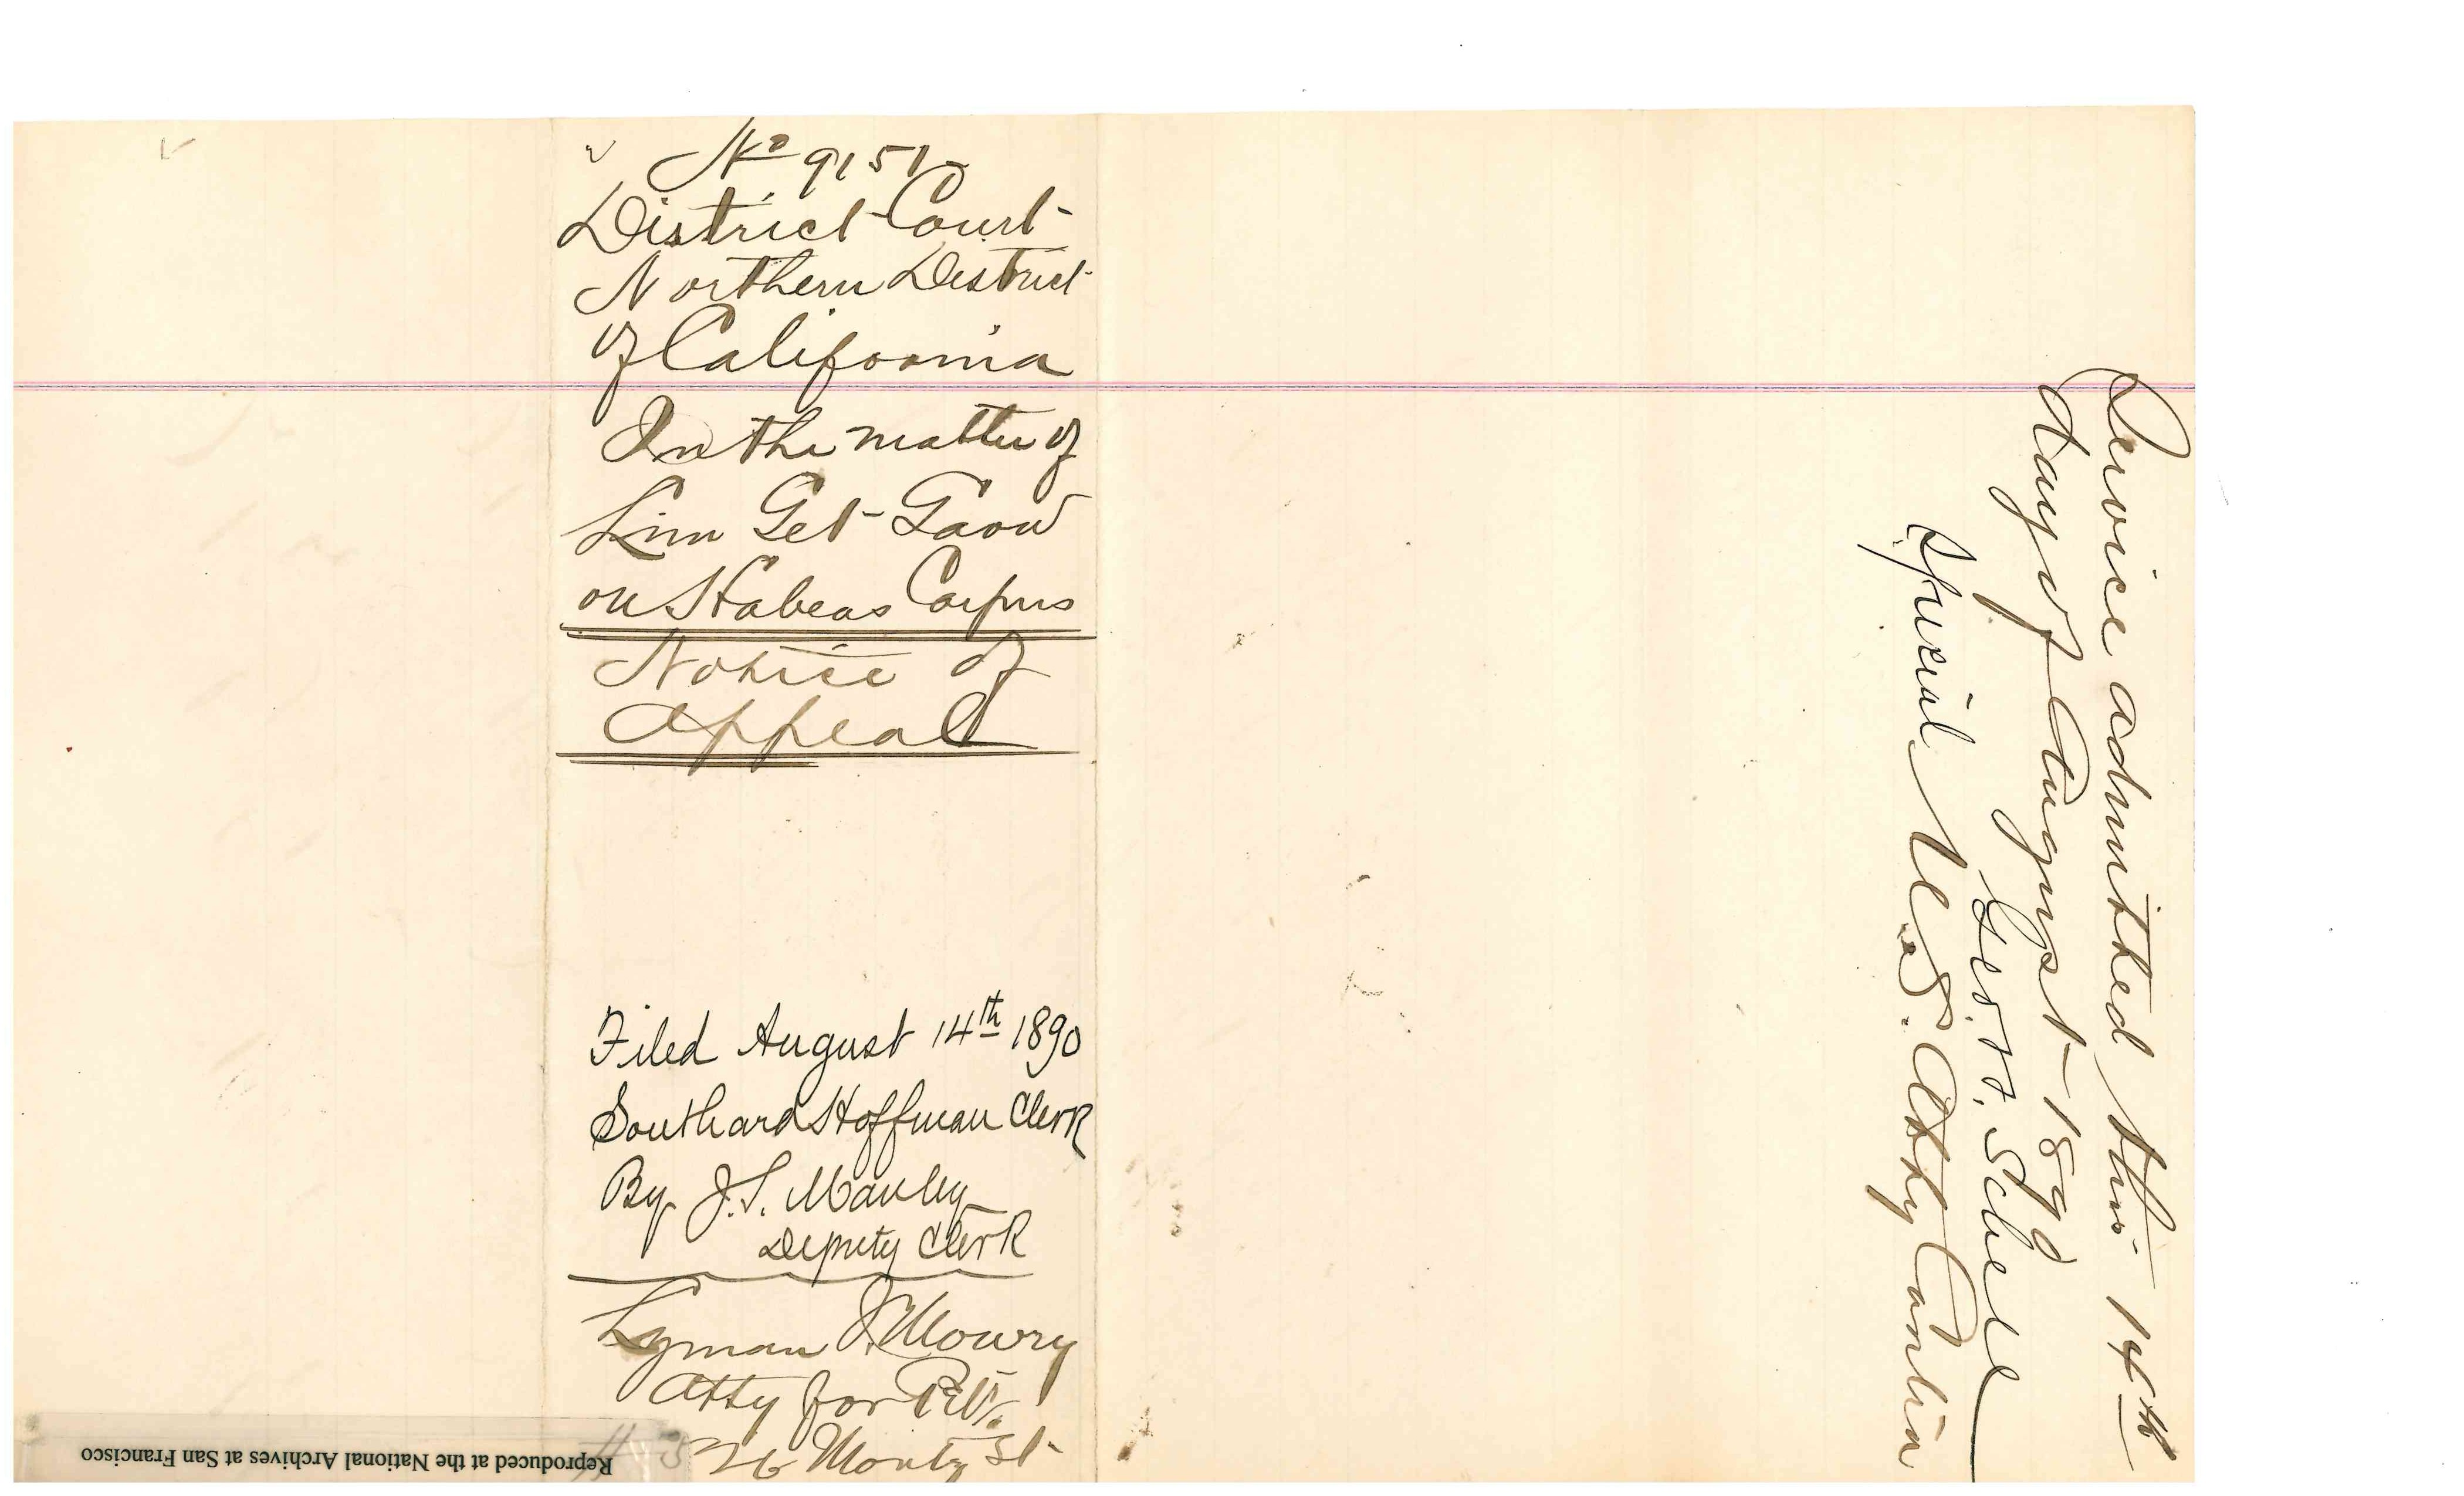 No 9151
District Court
Northern District
of California
In the matter of
Lim Get Gaow
on Habeas Corpus
Notice of
Appeal
Filed August 14th 1890
Southard Hoffman Clerk
By J.S. Manley
Deputy Clerk
Lyman I. Mowry
Atty for Petr.
526 Montg St
Reproduced at the National Archives at San Francisco
Service admitted this 14th
day of August 1890
Geo. F. Schell
Special U.S. Atty